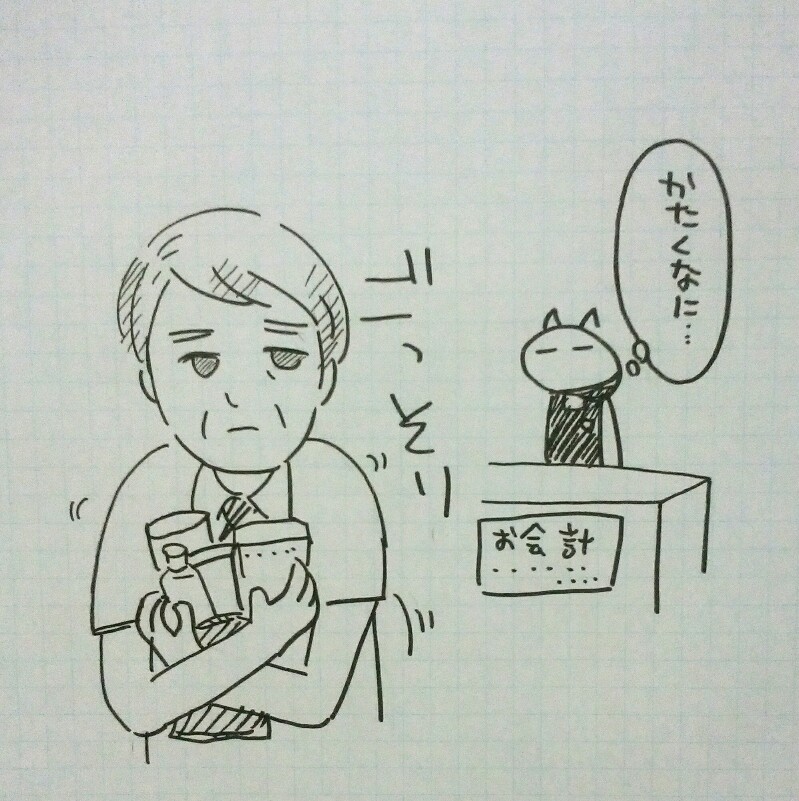 かたくなに…
ごっそり
お会計